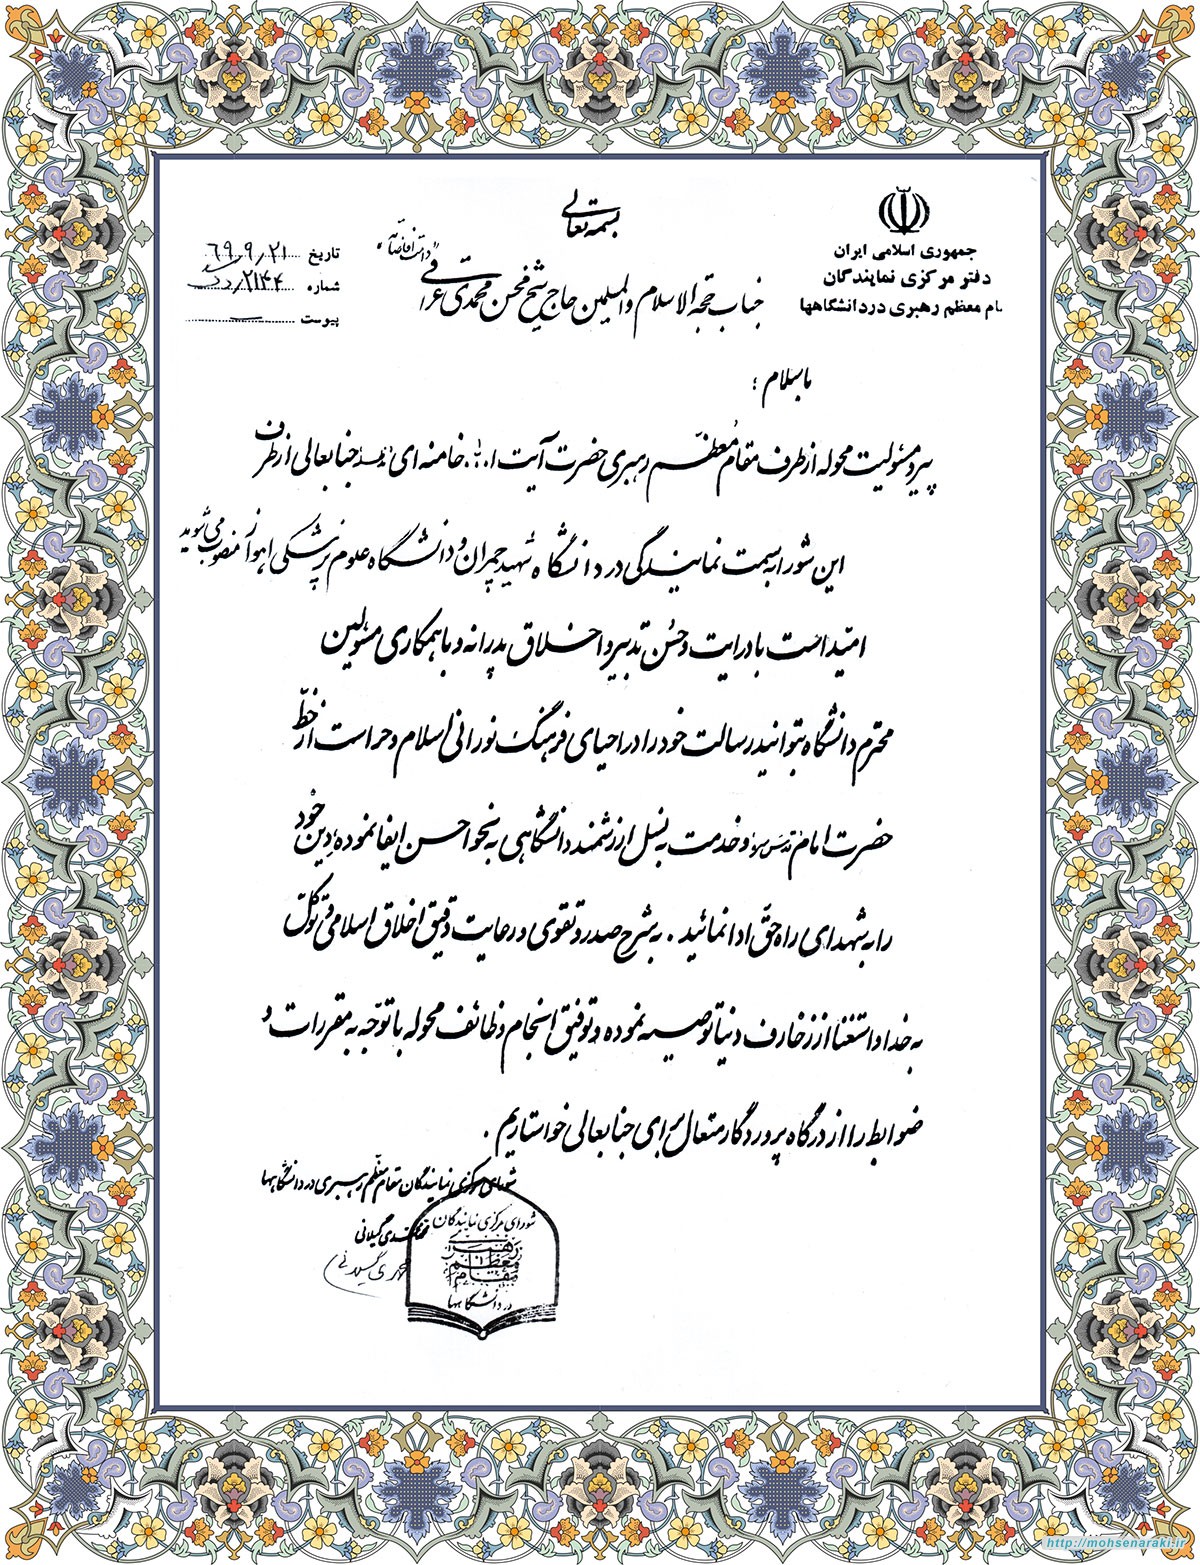 بسمه تعالی
جمهوری اسلامی ایران
دفتر مرکزی نمایندگان
ام معظم رهبری در دانشگاهها
تاریخ ۶۹٫۹٫۲۱
شماره ۲۱۴۴
پیوست
جناب حجة الاسلام والمسلمین حاج شیخ محسن محمدی عراقی
"دامت افاضاته"
باسلام ؛
پیرو مسئولیت محوله از طرف مقام معظم رهبری حضرت آیت ا... خامنه ای جنابعالی از طرف
این شورا به سمت نمایندگی در دانشگاه شهید چمران و دانشگاه علوم پزشکی اهواز منصوب می شوید
امید است با درایت و حسن تدبیر و اخلاق پدرانه و با همکاری مسئولین
محترم دانشگاه بتوانید رسالت خود را در احیای فرهنگ نورانی اسلام و حراست از خط
حضرت امام قدس سره و خدمت به نسل ارزشمند دانشگاهی به نحو احسن ایفا نموده دین خود
را به شهدای راه حق ادا نمائید . به شرح صدر و تقوی و رعایت دقیق اخلاق اسلامی و توکل
به خدا و استغنا از زخارف دنیا توصیه نموده و توفیق انجام وظائف محوله با توجه به مقررات و
ضوابط را از درگاه پروردگار متعال برای جنابعالی خواستاریم .
شورای مرکزی نمایندگان مقام معظم رهبری در دانشگاهها
محمدی گیلانی
شورای مرکزی نمایندگان
مقام معظم رهبری
در دانشگاهها
http://mohsenaraki.ir